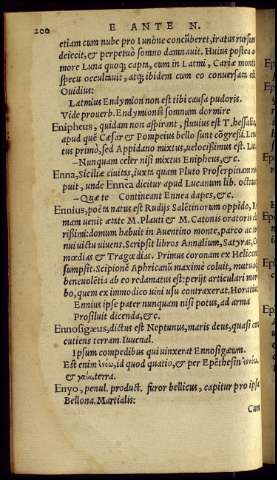 200 E ANTE N.
etiam cum nube pro Iunone concũberet, iratus rursum
deiecit, & perpetuò somno damnauit. Huius postea a-
more Luna quoq; capta, eum in Latmi, Cariæ monti
specu occuluit, atq; ibidem cum eo conuersata
Ouidius:
Latmius Endymion non est tibi causa pudoris.
Vide prouerb. Endymionis somnum dormire
Enipheus, quidam non aspirant, fluuius est T.hessaliæ
apud quẽ Cæsar & Pompeius bello sunt cõgressi.
tus primò, sed Appidano mixtus, uelocissimus est. Lu
-Nunquam celer nisi mixtus Enipheus, &c.
Enna, Siciliæ ciuitas, iuxta quam Pluto Proserpinam
puit, unde Ennea dicitur apud Lucanum lib. octauo
-Quæ te Contineant Ennea dapes, &c.
Ennius, poëta natus est Rudijs Salẽtinorum oppido,
mam uenit ãnte M. Plauti & M. Catonis oratoris
rißimi: domum habuit in Auentino monte, parco ac
nui uictu uiuens. Scripsit libros Annalium, Satyras, Co
mœdias & Tragœdias. Primus coronam ex Helicone
sumpsit. Scipionẽ Aphricanũ maximè coluit, mutuisq;
beneuolẽtia ab eo redamatus est: perijt articulari mor
bo, quem ex immodico uini usu contraxerat. Horatius
Ennius ipse pater nunquam nisi potus, ad arma
Prosiluit dicenda, &c.
Ennosigæus, dictus est Neptunus, maris deus, quasi
cutiens terram. Iuuenal.
Ipsum compedibus qui uinxerat Ennosigæum.
Est enim id quod quatio, & per Epẽthesin
& terra.
Enyo, penul. product. furor bellicus, capitur pro ipsa
Bellona. Martialis:
Cum